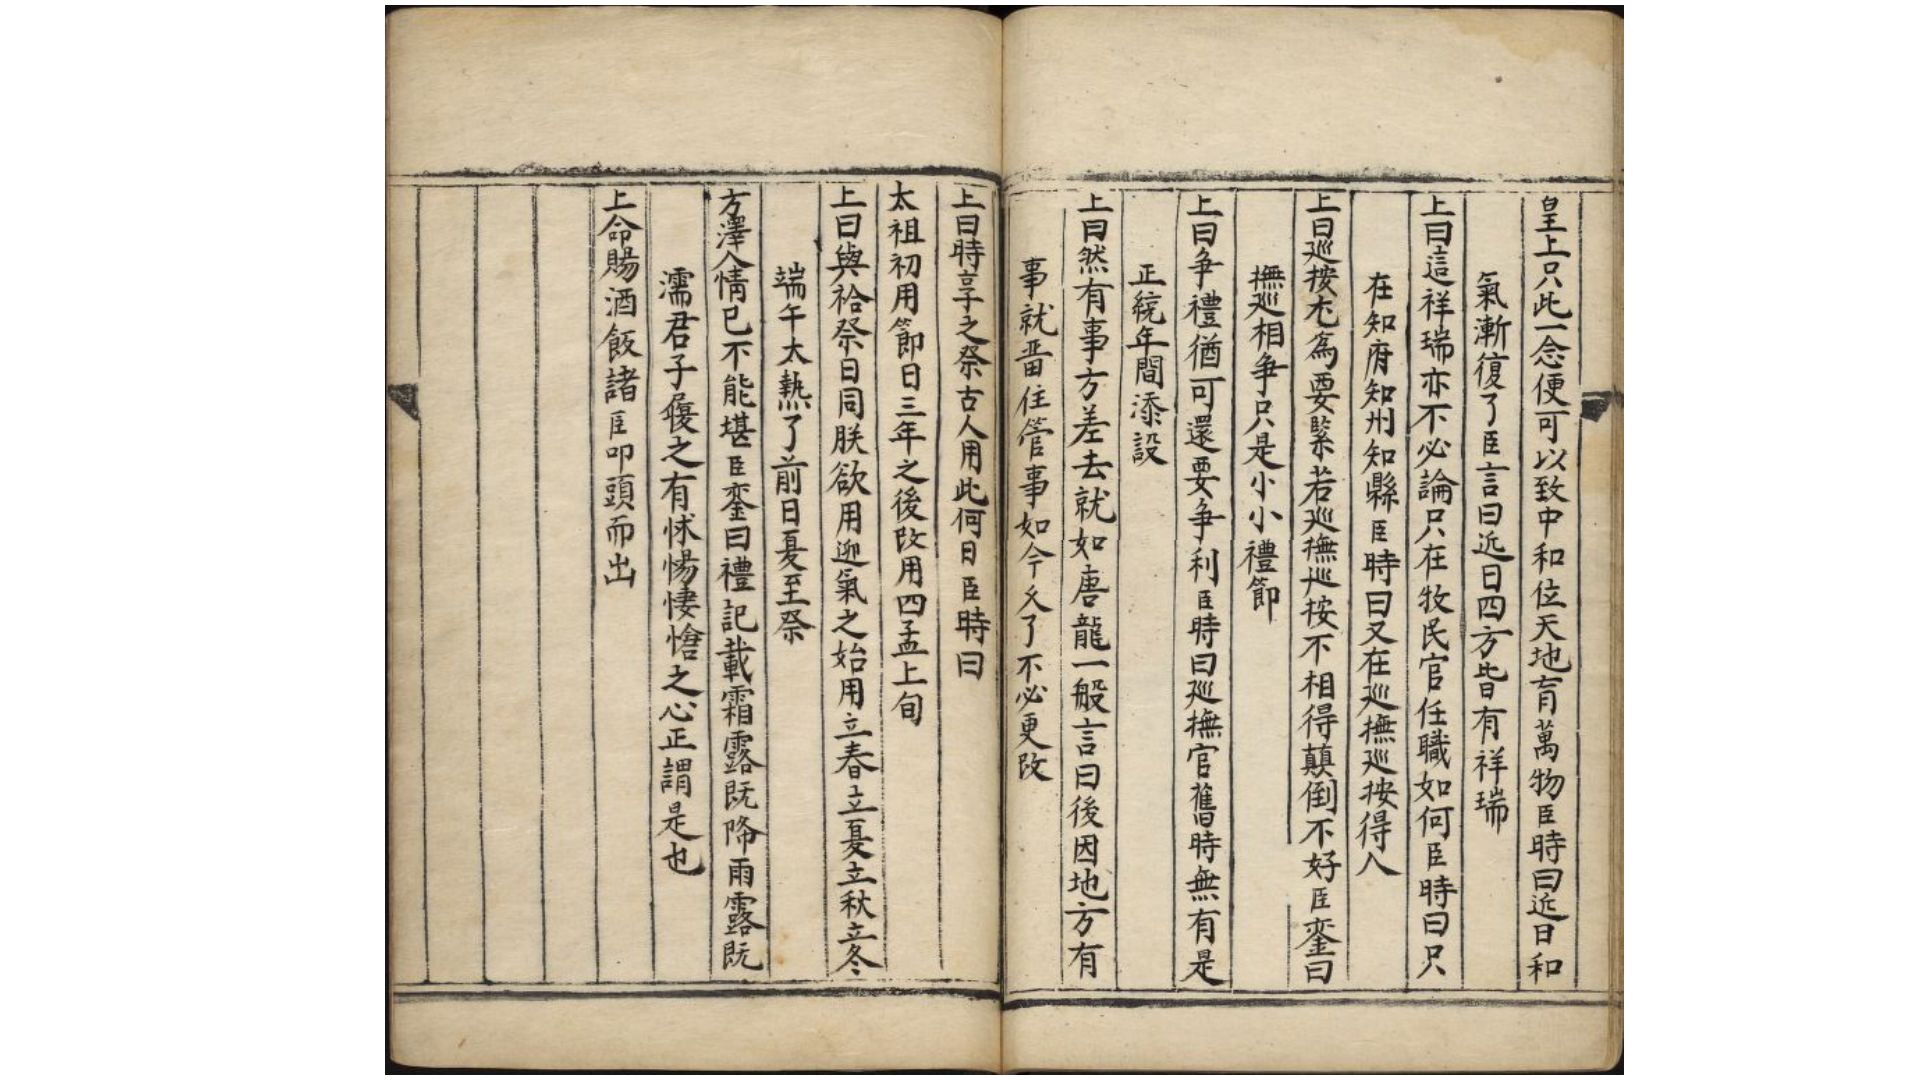 皇上只此一念便可以致中和位天地育萬物臣時曰近日和
氣漸復了臣言曰近日四方皆有祥瑞
上曰這祥瑞亦不必論只在牧民官任職如何臣時曰只
在知府知州知縣臣時曰又在廵撫廵按得人
上曰廵按尤爲要緊若廵撫廵按不相得顛倒不好臣鑾曰
撫廵相爭只是小小禮節
上曰爭禮猶可還要爭利臣時曰廵撫官舊時無有是
正統年間添設
上曰然有事方差去就如唐龍一般言曰後因地方有
事就畱住管事如今久了不必更改
上曰時享之祭古人用此何日臣時曰
太祖初用節日三年之後改用四孟上旬
上曰與祫祭日同朕欲用迎氣之始用立春立夏立秋立冬
端午太熱了前日夏至祭
方澤人情已不能堪臣鑾曰禮記載霜露既降雨露既
濡君子履之有怵惕悽愴之心正謂是也
上命賜酒飯諸臣叩頭而出